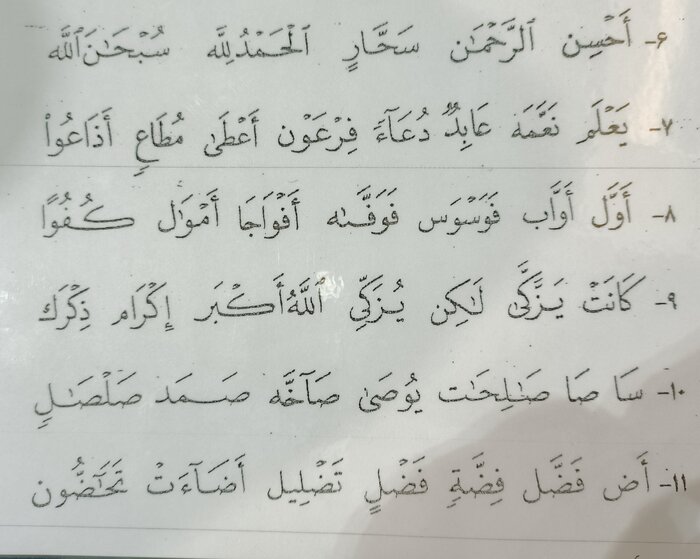 ٦- أَحْسِن الرَّحْمَٰن سَحَّارٍ الْحَمْدُ لِلَّه سُبْحَٰنَ اللَّه
٧- يَعْلَم نَعَّمَه عَابِدٌ دُعَآءَ فِرْعَوْن أَعْطَىٰ مُطَاعٍ أَذَاعُوا
٨- أَوَّل أَوَّاب فَوَسْوَس فَوَفَّىٰه أَفْوَاجَا أَمْوَٰل كُفُوًا
٩- كَانَتْ يَزَّكَّىٰ لَٰكِن يُزَكِّي اللَّهُ أَكْبَر إِكْرَام ذِكْرَك
١٠- سَا صَا صَٰلِحَات يُوصَىٰ صَآخَّه صَمَد صَلْصَٰلٍ
١١- أَض فَضَّل فِضَّةٍ فَضْلٍ تَضْلِيل أَضَآءَتْ تَحَٰٓضُّون